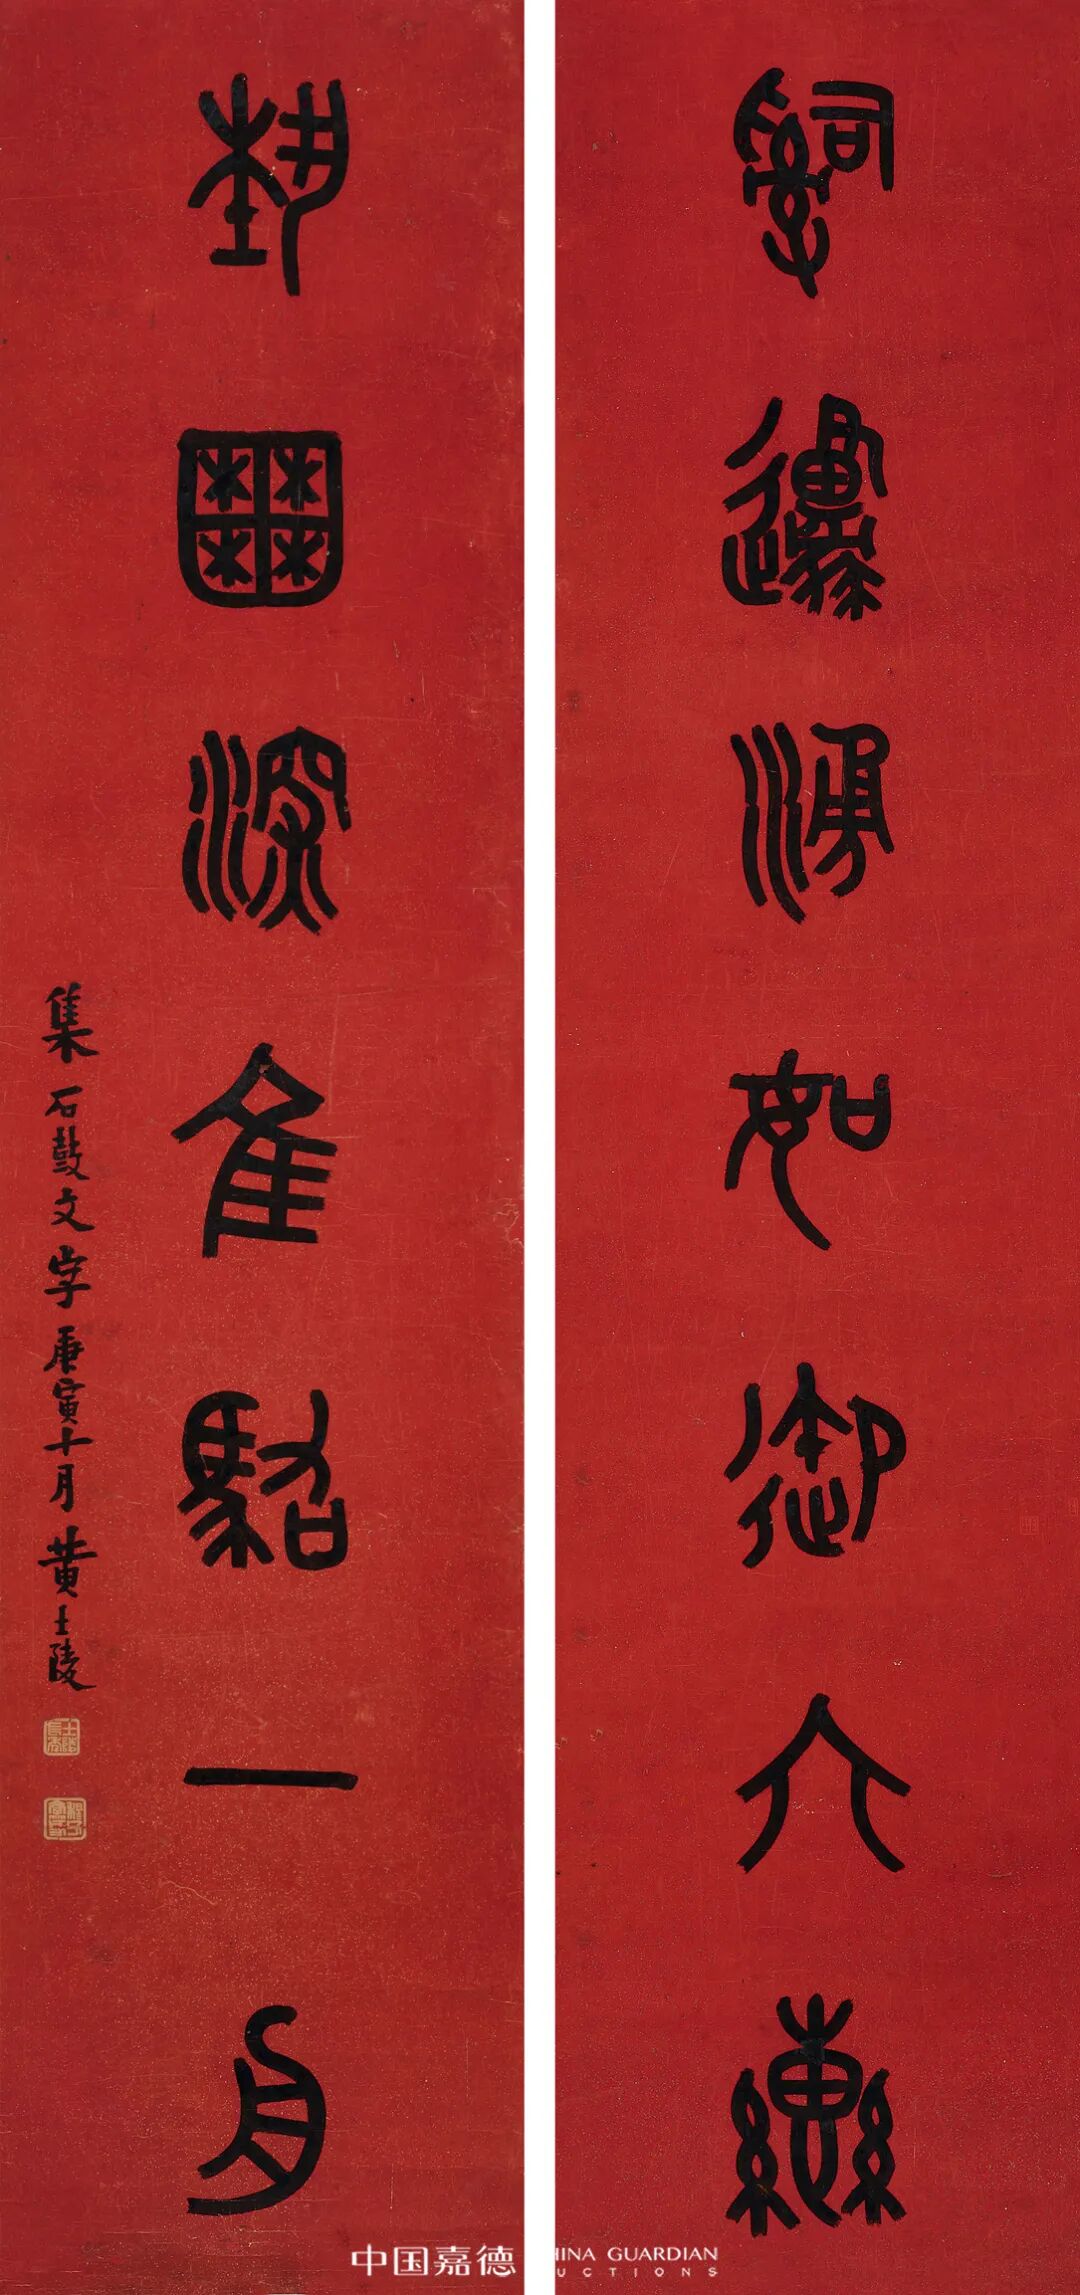 辭邍湧如御六轡
埶囿深隹駕一舟
集石鼓文字庚寅十月黄士陵
中国嘉德 HINA GUARDIAN
UCTIONS